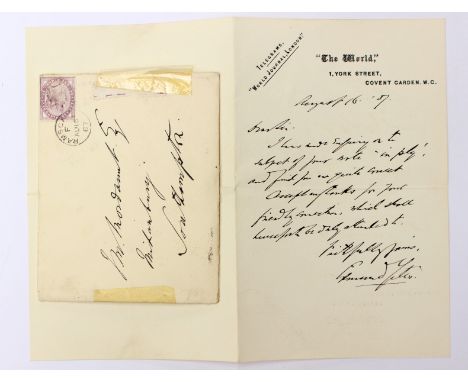 TELEGRAMS.
"WORLD JOURNAL, LONDON."
"The World,"
1, YORK STREET,
COVENT GARDEN. W.C.
August 16. '87
Dear Sir
I have made inquiry on the
subject of your note "in ply",
and find you are quite correct
Accept my thanks for your
friendly correction, which shall
henceforth be duly attended to.
Faithfully yours,
Edmund Yates.
J. W.
Southampton
F
AU
87